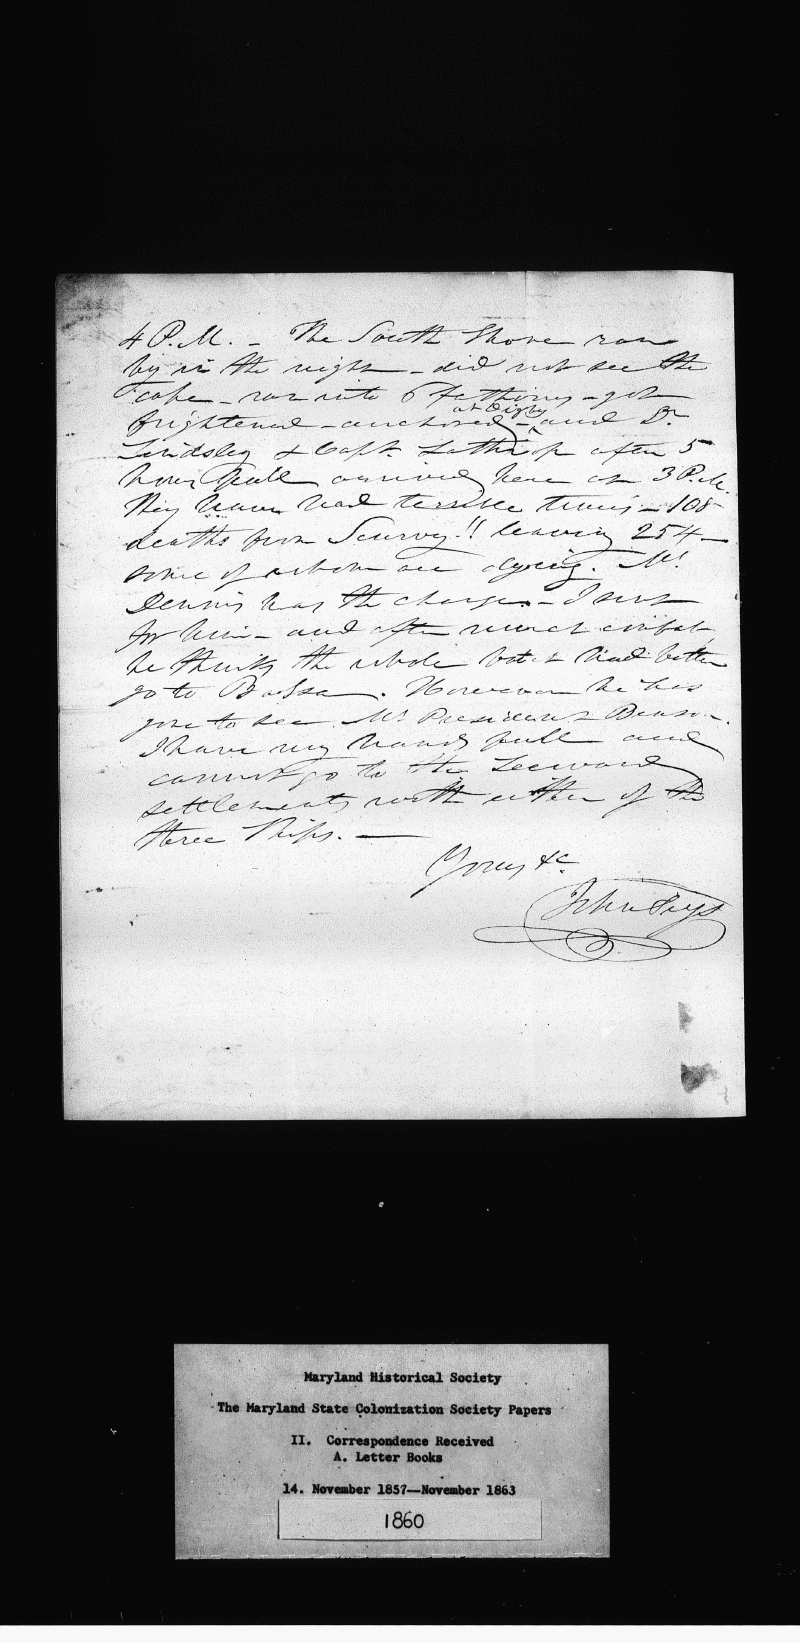 4 P.M. - The South Shore ran
by in the night - did not see the
Cape - ran into 6 fathoms - got
at Digby
frightened - anchored - and Dr
Lindsley & Capt. Lathrop after 5
hours pull arrived here at 3 P.M.
They have had terrible times - 108
deaths from Scurvy!! leaving 254 -
some of whom are dying. Mr
Dennis has the charge. - I sent
for him - and after much
he thinks the whole had better
go to Bassa. However he has
gone to see Mr President Benson.
I have my hands full and
cannot go to the Leeward
settlements with either of the
three Ships. —
Yours &c
John Seys
Maryland Historical Society
The Maryland State Colonization Society Papers
II. Correspondence Received
A. Letter Books
14. November 1857--November 1863
1860